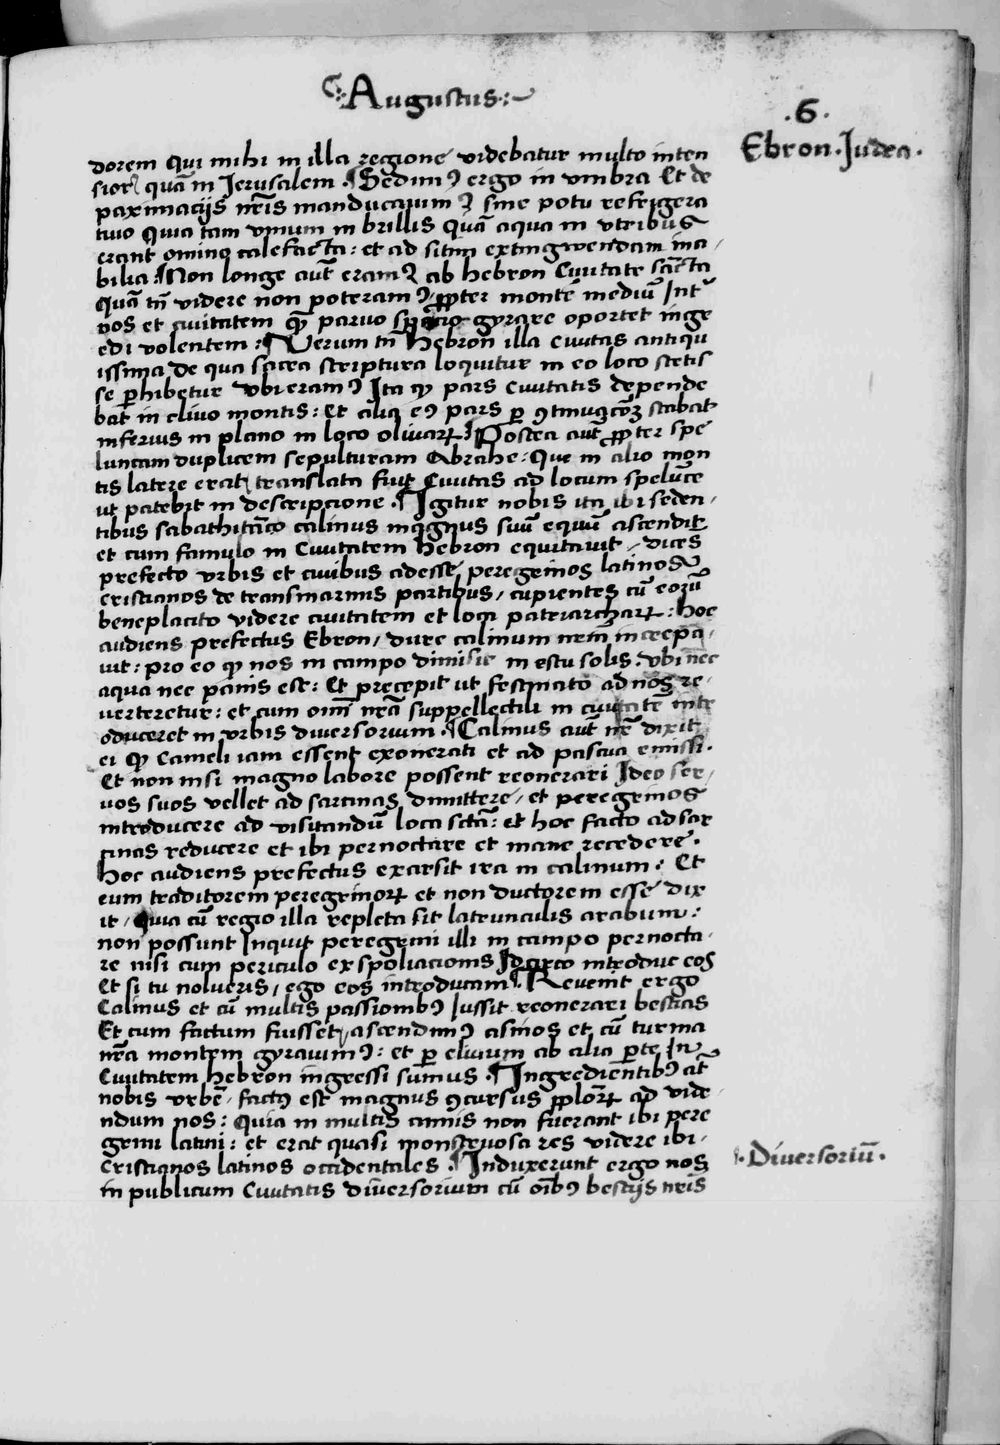 Augustus
.6.
Ebron. Judea.
dorem qui mihi in illa regione videbatur multo inten
sior quã in Jerusalem. Sedimꝰ ergo in vmbra Et de
paximacijs nr̃is manducauimꝰ sine potu refrigera
tiuo quia tam vinum in brillis quã aqua in vtribus
erant omino calefacta: et ad sitim extingwendam ina
bilia. Non longe aut̃ eramꝰ ab hebron Ciuitate sc̃ta
quã tñ videre non poteramꝰ ꝓpter montẽ mediũ Int̃
nos et ciuitatem quẽ paruo spacio gyrare oportet ingr
edi volentem: Verum tñ Hebron illa Ciuitas antiqu
issima de qua sacra scriptura loquitur in eo loco stetis
se ꝑhibetur vbi eramꝰ Ita ꝙ pars Ciuitatis depende
bat in cliuo montis: Et alia eiꝰ pars ꝑ ꝯtinuacõꝫ stabat
inferius in plano in loco oliuarꝝ Postea aut̃ ꝓpter spe
luncam duplicem sepulturam Abrahe: Que in alio mon
tis latere erat, translata fuit Ciuitas ad locum spelũce
ut patebit in descripcione. Igitur nobis ita ibi seden
tibus sabathitãco calinus mignus suũ equũ ascendit
et cum famulo in Ciuitatem hebron equitauit, dicẽs
prefecto vrbis et ciuibus adesse peregrinos latinos
cristianos de transmarinis partibus, cupientes cũ eorũ
beneplacito videre ciuitatem et loca patriarcharꝝ: hoc
audiens prefectus Ebron, dure calinum nr̃m increpa
uit: pro eo ꝙ nos in campo dimisit in estu solis. vbi nec
aqua nec panis est: Et precepit ut festinato ad nos re
uerteretur: et cum om̃i nr̃a suppellectili in ciuitatẽ intr
oduceret in vrbis diuersorium. Calinus aut̃ nr̃ dixit
ei ꝙ Cameli iam essent exonerati et ad pascua emissi.
Et non nisi magno labore possent reonerari Ideo ser
uos suos vellet ad sarcinas dimittere, et peregrinos
introducere ad visitandũ loca sc̃ta: et hoc facto ad sar
cinas reducere et ibi pernoctare et mane recedere.
Hoc audiens prefectus exarsit ira in calinum: Et
eum traditorem peregrinorꝝ et non ductorem esse dix
it, Quia cũ regio illa repleta sit latrunculis arabum:
non possunt Inquit peregrini illi in campo pernocta
re nisi cum periculo exspoliacionis Idcirco introduc eos
Et si tu nolueris, ego eos introducam. Reuenit ergo
Calinus et cũ multis passionibꝰ Iussit reonerari bestias
Et cum factum fuisset, ascendimꝰ asinos et cũ turma
nr̃a montem gyrauimꝰ: et ꝑ cliuum ab alia ꝑte In
Ciuitatem hebron ingressi sumus. Ingredientibꝰ at̃
nobis vrbẽ, factꝰ est magnus ꝯcursus pplorꝝ ad vide
ndum nos: Quia in multis annis non fuerant ibi pere
grini latini: et erat quasi monstruosa res videre ibi
Cristianos latinos occidentales. Induxerunt ergo nos
in publicum Ciuitatis diuersorium cũ oĩbꝰ bestijs nr̃is
.Diuersoriũ.